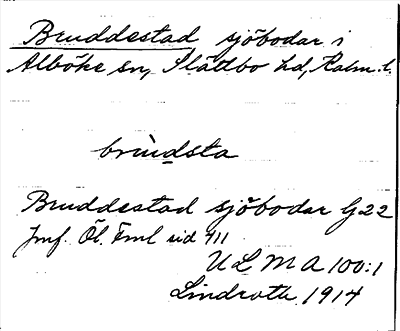 Bruddestad sjöbodar i
Alböke sn, Slättbo hd, Kalm. l.
brùdsta
Bruddestad sjöbodar G22
Jmf. Öl. Fml sid 411
ULMA 100:1
Lindroth 1914